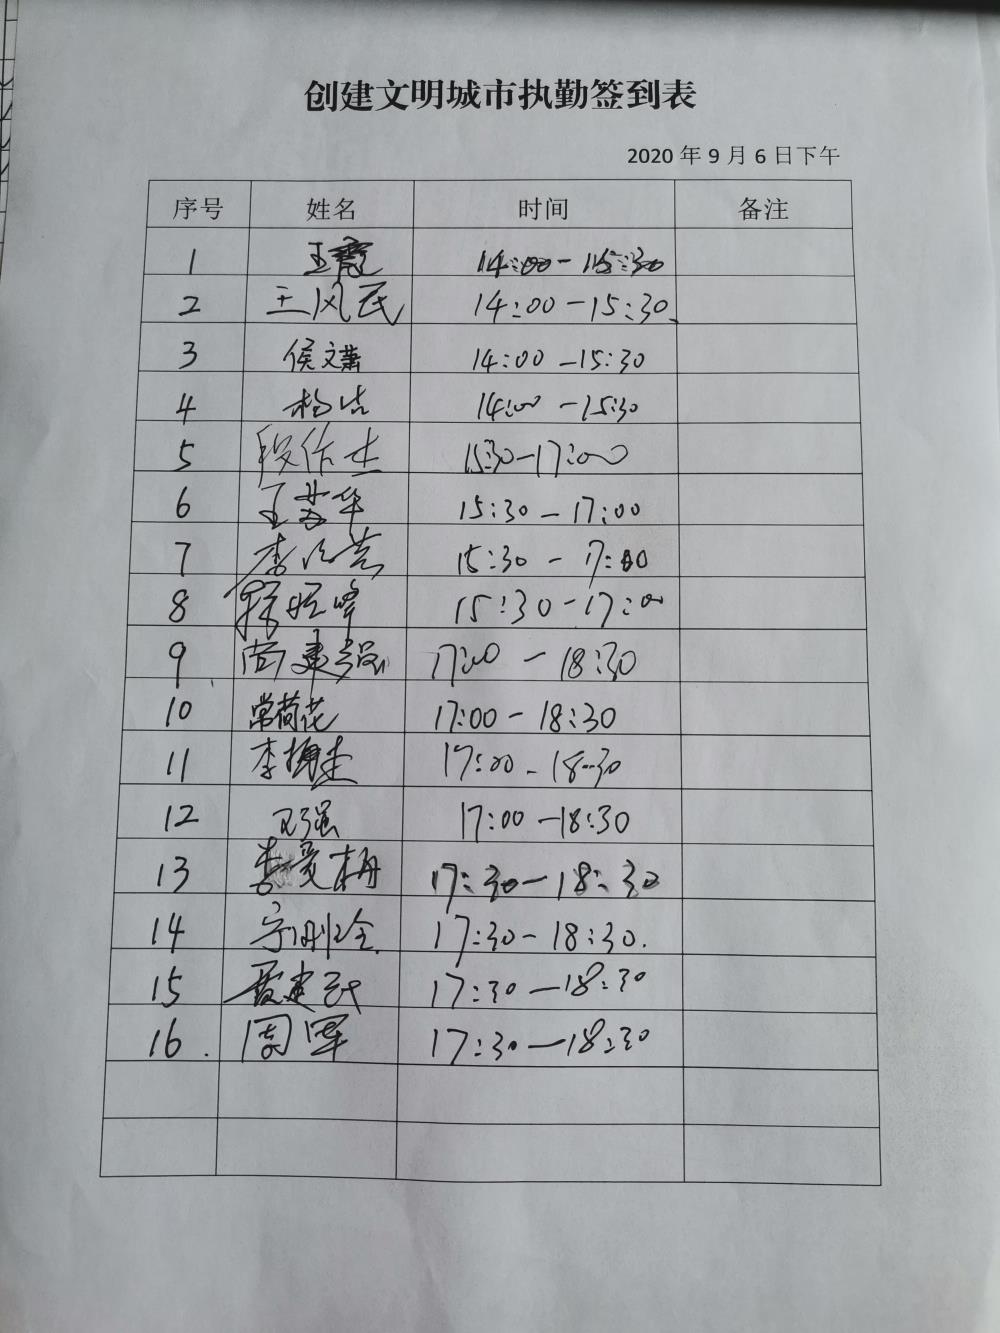 创建文明城市执勤签到表
2020 年 9 月 6 日下午
序号 姓名 时间 备注
1 王霞 14:00-15:30
2 王风民 14:00-15:30
3 侯文萧 14:00-15:30
4 杨洁 14:00-15:30
5 段作杰 15:30-17:00
6 王芸华 15:30-17:00
7 李 15:30-17:00
8 15:30-17:00
9 尚建 17:00-18:30
10 常荷花 17:00-18:30
11 李 17:00-18:30
12 王强 17:00-18:30
13 李爱梅 17:30-18:30
14 17:30-18:30.
15 建 17:30-18:30
16. 周军 17:30-18:30